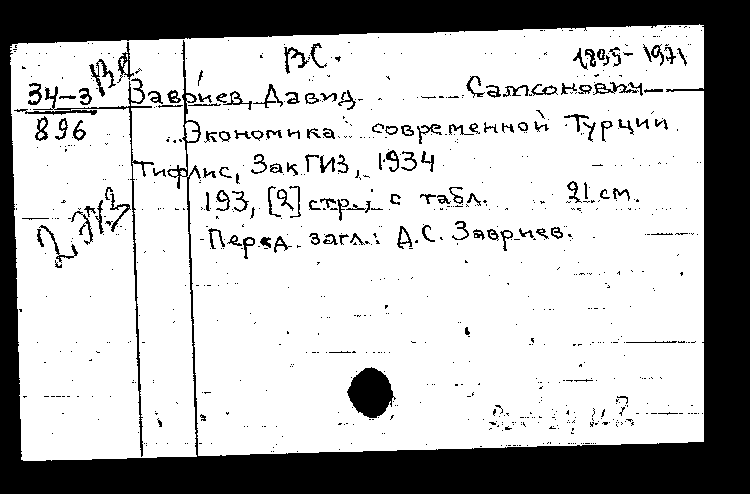 ВС. 1899-1971
34-3 Завриев, Давид Самсонович
896 Экономика современной Турции
Тифлис, ЗакГИЗ, 1934
193, [2] стр.; с табл. 21 см.
2 экз
Перед загл.: Д.С. Завриев.